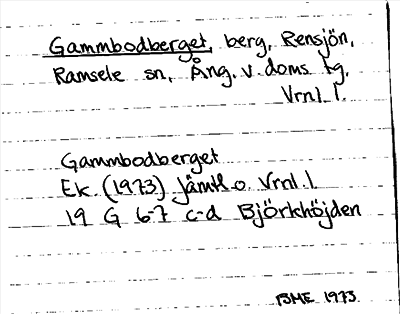 Gammbodberget, berg, Rensjön,
Ramsele sn, Ång. v. doms tg,
Vrnl. l.
Gammbodberget
Ek. (1973) Jämtl o. Vrnl. l.
19 G 6-7 c-d Björkhöjden
BME 1973